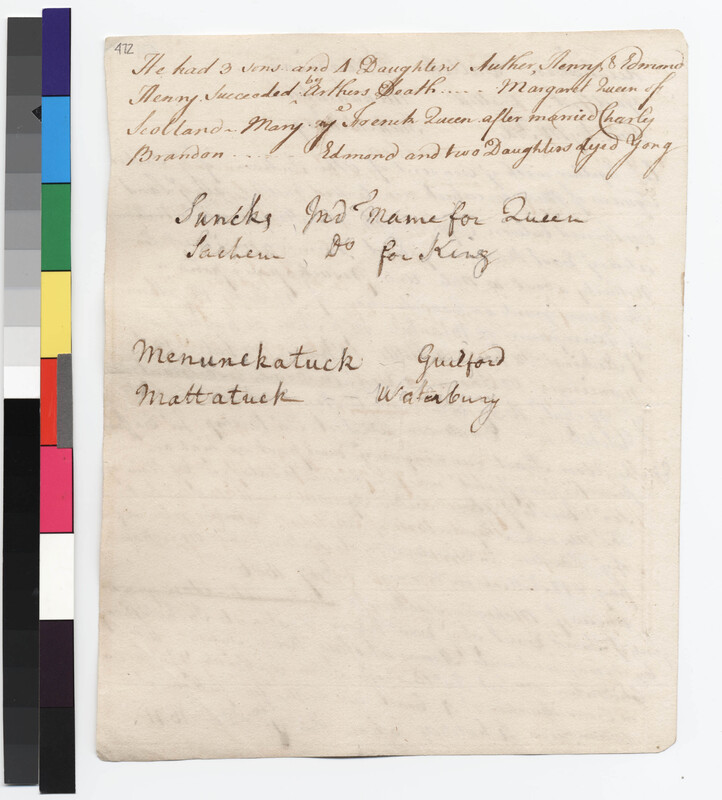 472
He had 3 sons and 4 Daughters Auther, Henry, & Edmond
Henry Succeeded by Arthers Death ..... Margaret Queen of
Scolland - Mary ye French Queen after married Charly
Brandon ..... Edmond and two Daughters dyed Yong
Suncks, Indn name for Queen
Sachem Do for King
Menunckatuck Guilford
Mattatuck Waterbury